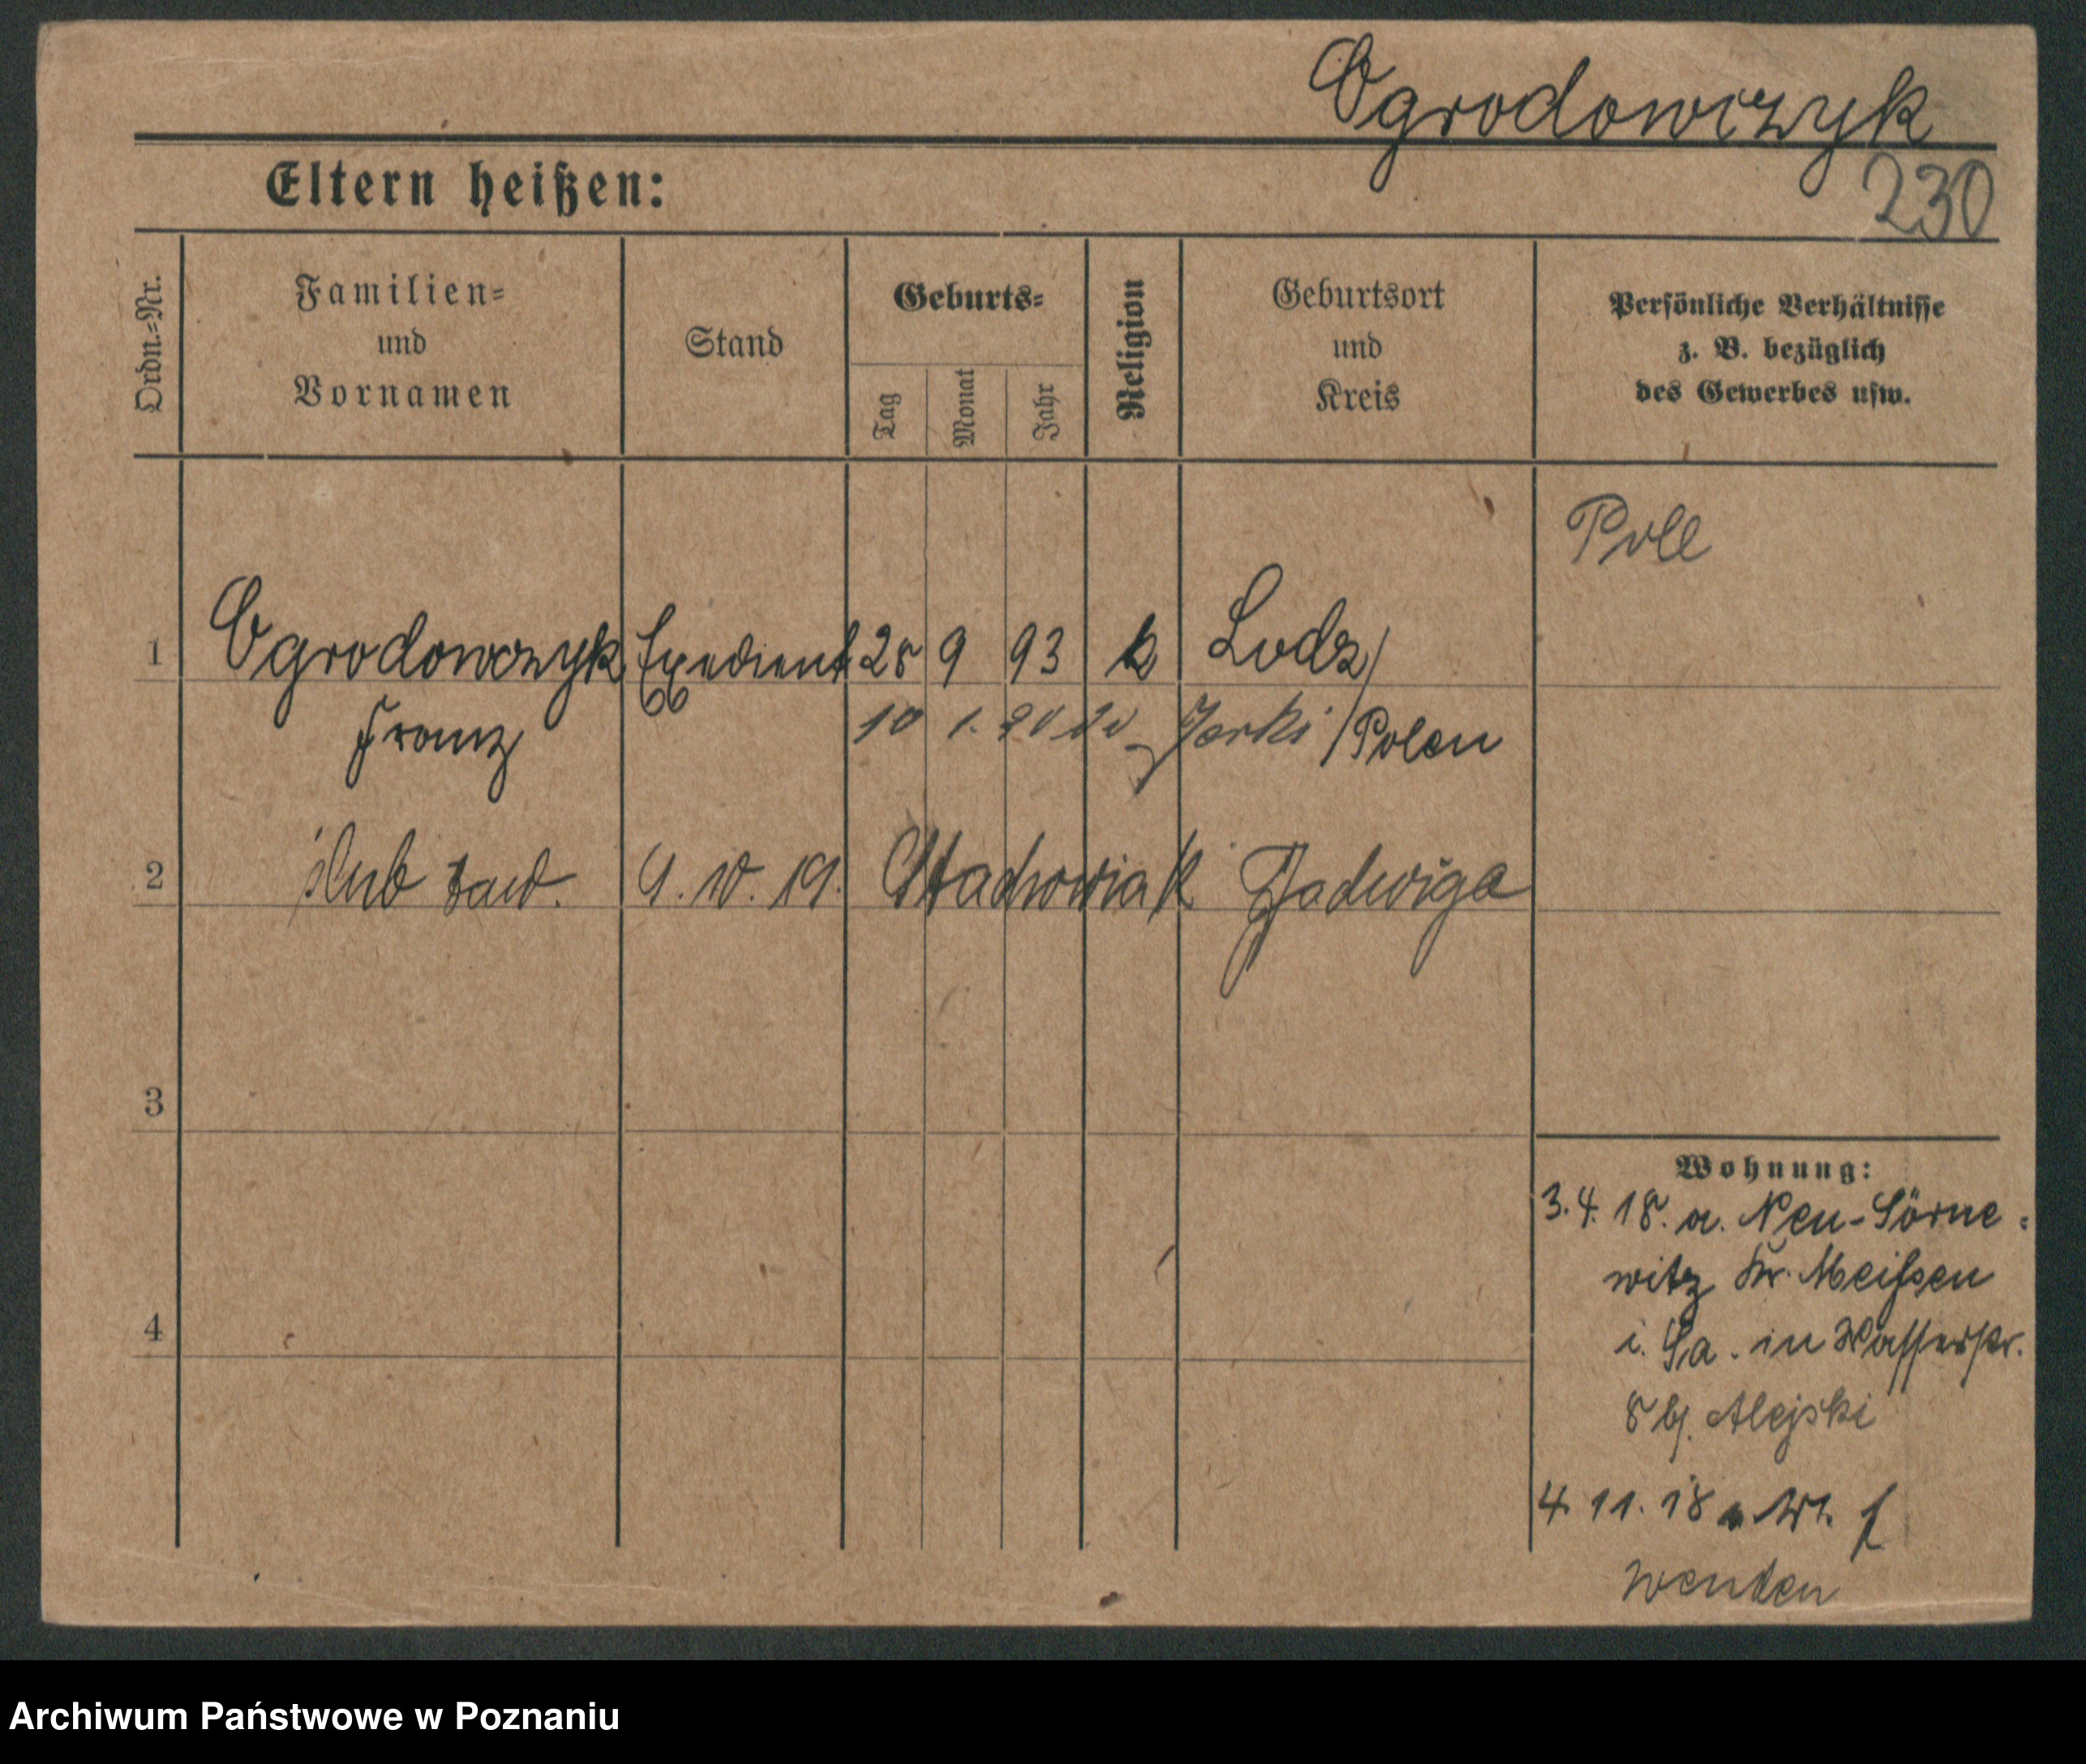 Ogrodowczyk
230
Eltern heißen:
Ordn.=Nr.
Familien=
und
Vornamen
Stand
Geburts=
Tag
Monat
Jahr
Religion
Geburtsort
und
Kreis
Persönliche Verhältnisse
z. B. bezüglich
des Gewerbes usw.
Pole
1 Ogrodowczyk Expedient 28 9 93 k Lodz/
Franz 10 1. Jerki /Polen
2 ślub zaw. 9. 10. 19. Stachowiak Jadwiga
3
4
Wohnung:
3. 4. 18. a. Neu-Sörne=
witz Kr. Meißen
i. Sa. in Wasserstr.
8 bj. Alejski
4 11. 18
wenden
Archiwum Państwowe w Poznaniu